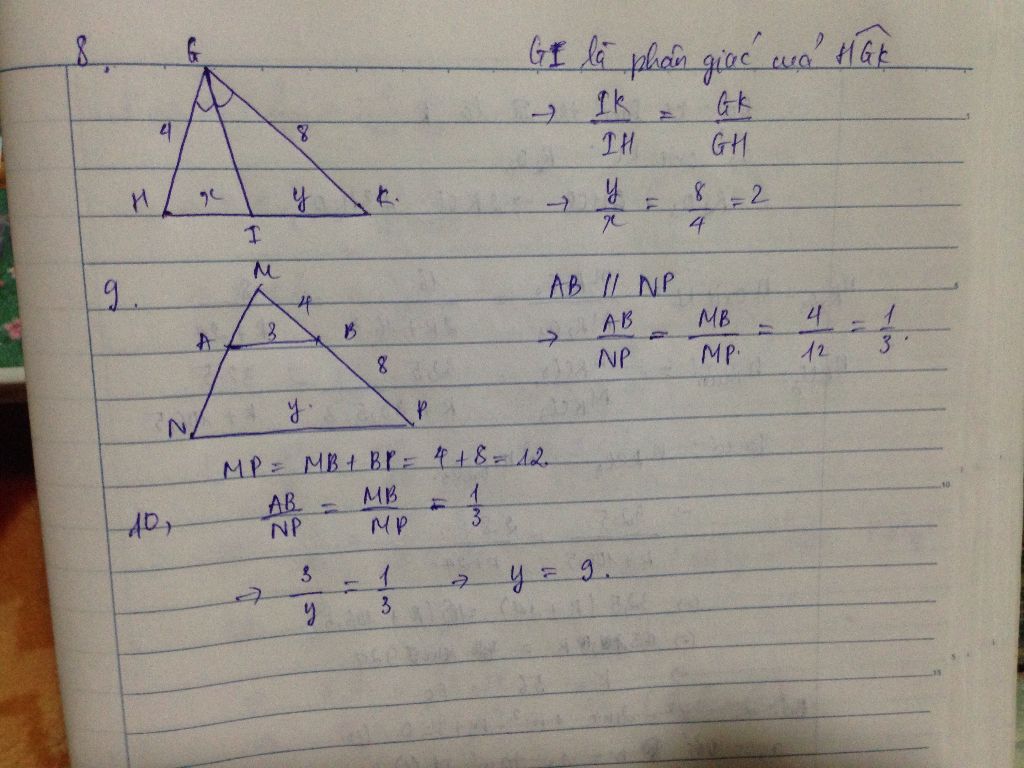 8.
G
4
8
H
x
y
K.
I
GI là phân giác của HGK
→ IK/IH = GK/GH
→ y/x = 8/4 = 2
9.
M
4
A
3
B
8
N
y.
P
AB // NP
→ AB/NP = MB/MP. = 4/12 = 1/3.
MP = MB + BP = 4 + 8 = 12.
10, AB/NP = MB/MP = 1/3
→ 3/y = 1/3 → y = 9.